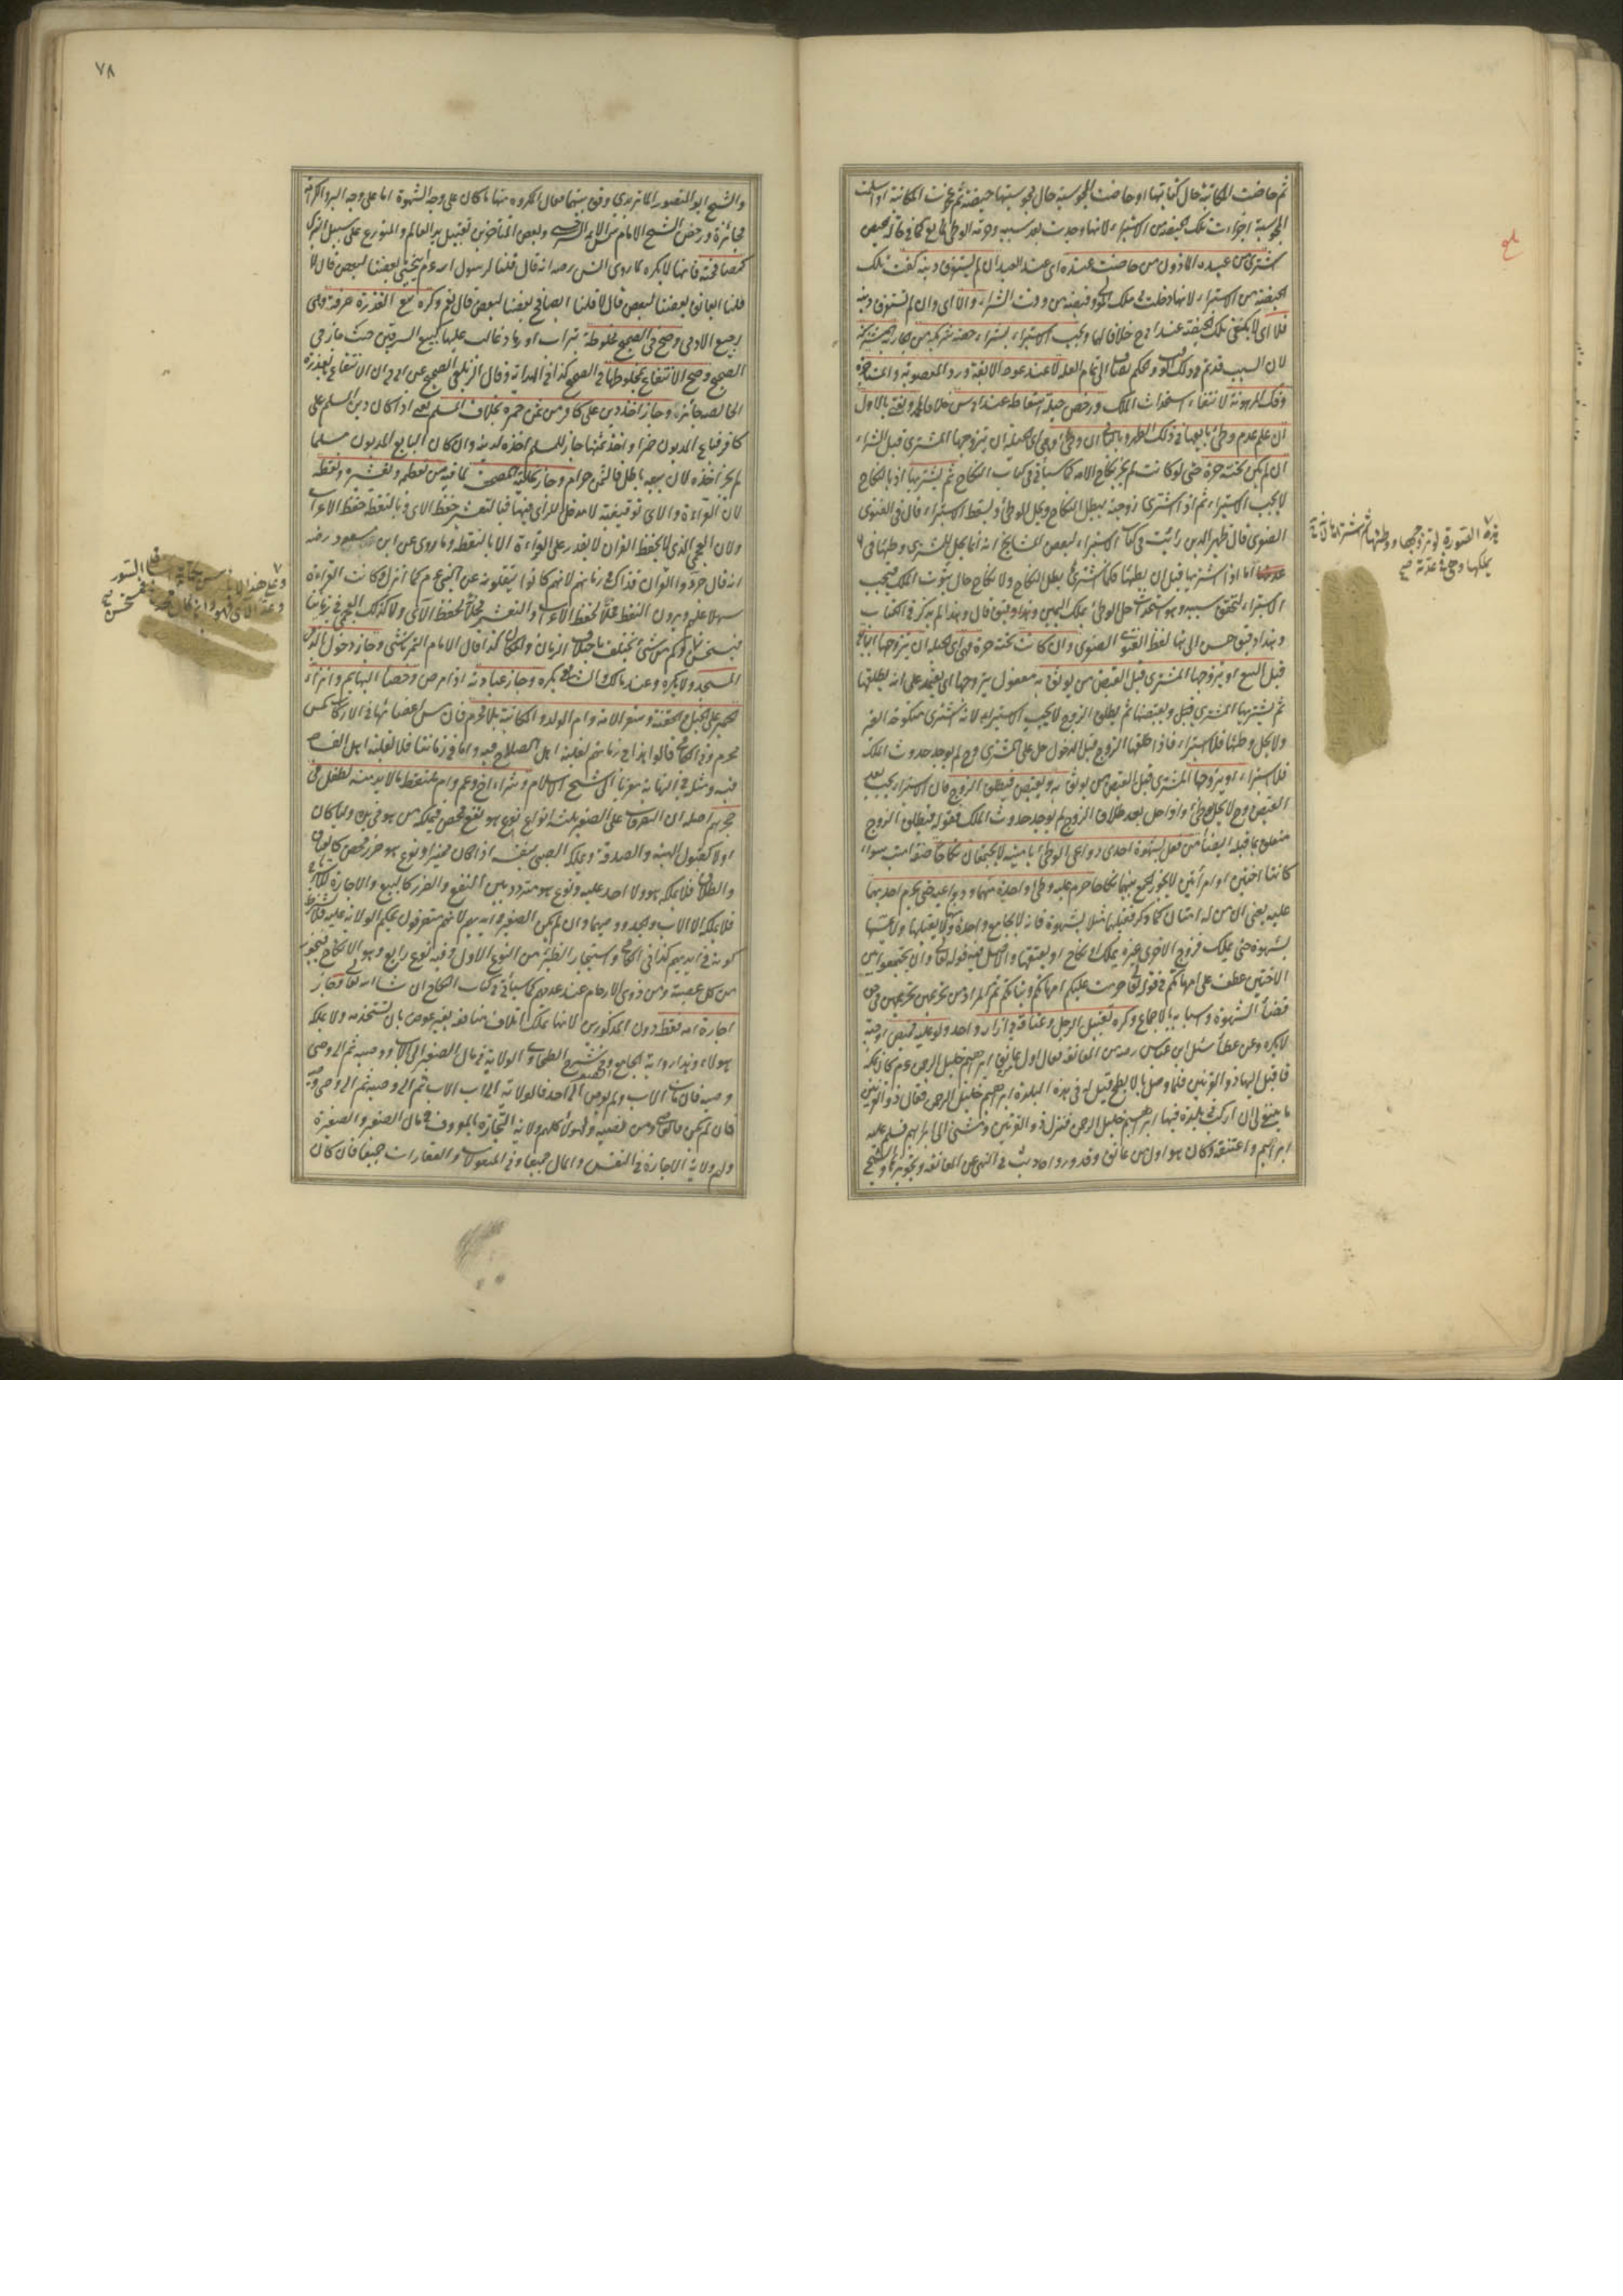 ثم حاضت المكاتبة حال كتابتها او حاضت المجوسية حال مجوسيتها حيضة ثم عجزت المكاتبة او اسلمت
المجوسية اجزاءت تلك الحيضة من الاستبراء لانها وجدت بعد سببه وحرمة الوطئ لمانع كما في حالة الحيض
شترى من عبده المأذون من حاضت عنده اى عند العبد ان لم يستغرق دينه كفت تلك
الحيضة من الاستبراء لانها دخلت في ملك المولى وقبضه من وقت الشراء والا اى وان لم يستغرق دينه
فلا اى لا يكتفى بتلك الحيضة عند ابى ح خلافا لهما ويجب الاستبراء بشراء حصة شريكه من جارية مشتركة
لان السبب قد تم في ذلك الوقت والحكم يضاف الى تمام العلة لا عند عود الآبقة ورد المغصوبة والمستأجرة
وفك المرهونة لانتفاء استحداث الملك ورخص حيلة اسقاطه عند ابى يوسف خلافا لمحمد ويفتى بالاول
ان علم عدم وطئ بايعها في ذلك الطهر وبالثانى ان وطئ وهى اى الحيلة ان يتزوجها المشترى قبل الشراء
ان لم يكن تحته حرة حتى لو كانت لم يجز نكاح الامة كما سيأتى في كتاب النكاح ثم يشتريها اذ بالنكاح
لا يجب الاستبراء ثم اذا اشترى زوجته يبطل النكاح ويحل الوطئ ويسقط الاستبراء قال في الفتاوى
الصغرى قال ظهير الدين رأيت في كتاب الاستبراء لبعض المشايخ انه انما يحل للمشترى وطئها في
اما اذا اشتريها قبل ان يطئها فكما اشترى بطل النكاح ولا نكاح حال ثبوت الملك فيجب
الاستبراء لتحقق سببه وهو استحداث حل الوطئ بملك اليمين وهذا دقيق قال وهذا لم يذكر في الكتاب
وهذا دقيق حسن الى هنا لفظ الفتاوى الصغرى وان كانت تحته حرة فهى اى الحيلة ان يزوجها البايع
قبل البيع او يزوجها المشترى قبل القبض من يوثق به مفعول يزوجها اى يعتمد على انه يطلقها
ثم يشتريها المشترى قبل ويقبضها ثم يطلق الزوج لا يجب الاستبراء لانه اشترى منكوحة الغير
ولا يحل وطئها فلا استبراء فاذا طلقها الزوج قبل الدخول حل على المشترى وح لم يوجد حدوث الملك
فلا استبراء او يزوجها المشترى قبل القبض من يوثق به ويقبض فيطلق الزوج فان الاستبراء يجب بعد
القبض وح لا يحل الوطئ واذا حل بعد طلاق الزوج لم يوجد حدوث الملك فقوله فيطلق الزوج
متعلق بما قبله ايضا من فعل بشهوة احدى دواعى الوطئ بامتيه لا يجتمعان نكاحا صفة امتيه سواء
كانتا اختين او امرأتين لا يجوز الجمع بينهما نكاحا حرم عليه وطئ واحدة منهما ودواعيه حتى يحرم احديهما
عليه يعنى ان من له امتان كما ذكر فقبلهما مثلا بشهوة فانه لا يجامع واحدة منهما ولا يقبلها ولا يمسها
بشهوة حتى يملك فرج الاخرى غيره بملك او نكاح او يعتقها والاصل فيه قوله تعالى وان تجمعوا بين
الاختين عطف على امهاتكم في قوله تعالى حرمت عليكم امهاتكم وبناتكم ثم المراد من تحريمهن تحريمهن في حق
قضاء الشهوة واسبابه بالاجماع وكره تقبيل الرجل وعناقه في ازار واحد ولو عليه قميص او جبة
لا يكره وعن عطاء سئل ابن عباس رضه عن المعانقة فقال اول من عانق ابراهيم خليل الرحمن عم كان بمكة
فاقبل اليها ذو القرنين فلما وصل بالابطح قيل له في هذه البلدة ابراهيم خليل الرحمن فقال ذو القرنين
ما ينبغى لى ان اركب في بلدة فيها ابراهيم خليل الرحمن فنزل ذو القرنين ومشى الى ابراهيم فسلم عليه
ابراهيم واعتنقه وكان هو اول من عانق وقد ورد احاديث في النهى عن المعانقة وتجويزها والشيخ
هذه الصورة لو تزوجها ووطئها ثم اشتراها لانه
يملكها وهى في عدته
٧٨
والشيخ ابو المنصور الماتريدى وفق بينهما فقال المكروه منها ما كان على وجه الشهوة اما على وجه البر والكرامة
فجائزة ورخص الشيخ الامام شمس الائمة السرخسى وبعض المتأخرين تقبيل يد العالم والمتورع على سبيل التبرك
كمصافحة فانها لا يكره لما روى انس رضه انه قال قلنا لرسول الله عم اينحنى بعضنا لبعض قال لا
قلنا ايعانق بعضنا لبعض قال لا قلنا ايصافح بعضنا لبعض قال نعم وكره بيع العذرة صرفة وهى
رجيع الآدمى وصح في الصحيح مخلوطة بتراب او رماد غالب عليها كبيع السرقين حيث جاز في
الصحيح وصح الانتفاع بمخلوطها في الصحيح كذا في الهداية وقال الزيلعى الصحيح عن ابى ح ان الانتفاع بالعذرة
الخالصة جائز وجاز اخذ دين على كافر من ثمن خمره بخلاف المسلم يعنى اذا كان دين المسلم على
كافر فباع المديون خمرا واخذ ثمنها جاز للمسلم اخذه لدينه وان كان البايع المديون مسلما
لم يجز اخذه لان بيعه باطل فالثمن حرام وجاز تحلية المصحف لما فيه من تعظيمه وتعشيره ونقطه
لان القراءة والآى توقيفية لا مدخل للرأى فيها فبالتعشير حفظ الآى وبالنقط حفظ الاعراب
ولان العجمى الذى لا يحفظ القرآن لا يقدر على القراءة الا بالنقط وما روى عن ابن مسعود رضه
انه قال جردوا القرآن فذاك في زمانهم لانهم كانوا ينقلونه عن النبى عم كما انزل وكانت القراءة
سهلا عليهم ويرون النقط مخلا لحفظ الاعراب والتعشير مخلا لحفظ الآى ولا كذلك العجمى في زماننا
فيستحسن وكم من شئ يختلف باختلاف الزمان والمكان كذا قال الامام التمرتاشى وجاز دخول الذمى
المسجد ولا يكره وعند مالك والشافعى يكره وجاز عيادته اذا مرض وخصاء البهايم وانزاء
الحمير على الخيل والحقنة وسفر الامة وام الولد والمكاتبة بلا محرم فان مس اعضائها في الاركاب كمس
محرم وفى الكافى قالوا هذا في زمانهم لغلبة اهل الصلاح فيه واما في زماننا فلا لغلبة اهل الفساد
فيه ومثله في النهاية معزيا الى شيخ الاسلام وشراء اخ وعم وام وملتقط ما لا بد منه لطفل في
حجرهم اصله ان التصرفات على الصغير ثلثة انواع نوع هو نفع محض فيملكه من هو في يده وليا كان
اولا كقبول الهبة والصدقة ويملكه الصبى بنفسه اذا كان مميزا ونوع هو ضرر محض كالعتاق
والطلاق فلا يملكه هو ولا احد عليه ونوع هو متردد بين النفع والضرر كالبيع والاجارة للاسترباح
فلا يملكه الا الاب والجد ووصيهما وان لم يكن الصغير في ايديهم لانهم متصرفون بحكم الولاية عليه فلا يشترط
كونه في ايديهم كذا في الكافى واستيجار الظئر من النوع الاول وفيه نوع رابع وهو الانكاح فيجوز
من كل عصبة ومن ذوى الارحام عند عدمهم كما سيأتى في كتاب النكاح ان شاء الله تعالى وجاز
اجارة امه فقط دون المذكورين لانها تملك اتلاف منافعه بغير عوض بان تستخدمه ولا يملكه
هؤلاء وهذا رواية الجامع وفى شرح الطحاوى الولاية في مال الصغير الى الاب ووصيه ثم الى وصى
وصيه فان مات الاب ولم يوص الى احد فالولاية الى اب الاب ثم الى وصيه ثم الى وصى وصيه
فان لم يكن فالقاضى ومن نصبه ولهؤلاء كلهم ولاية التجارة بالمعروف في مال الصغير والصغيرة
ولهم ولاية الاجارة في النفس والمال جميعا وفى المنقولات والعقارات جميعا فان كان